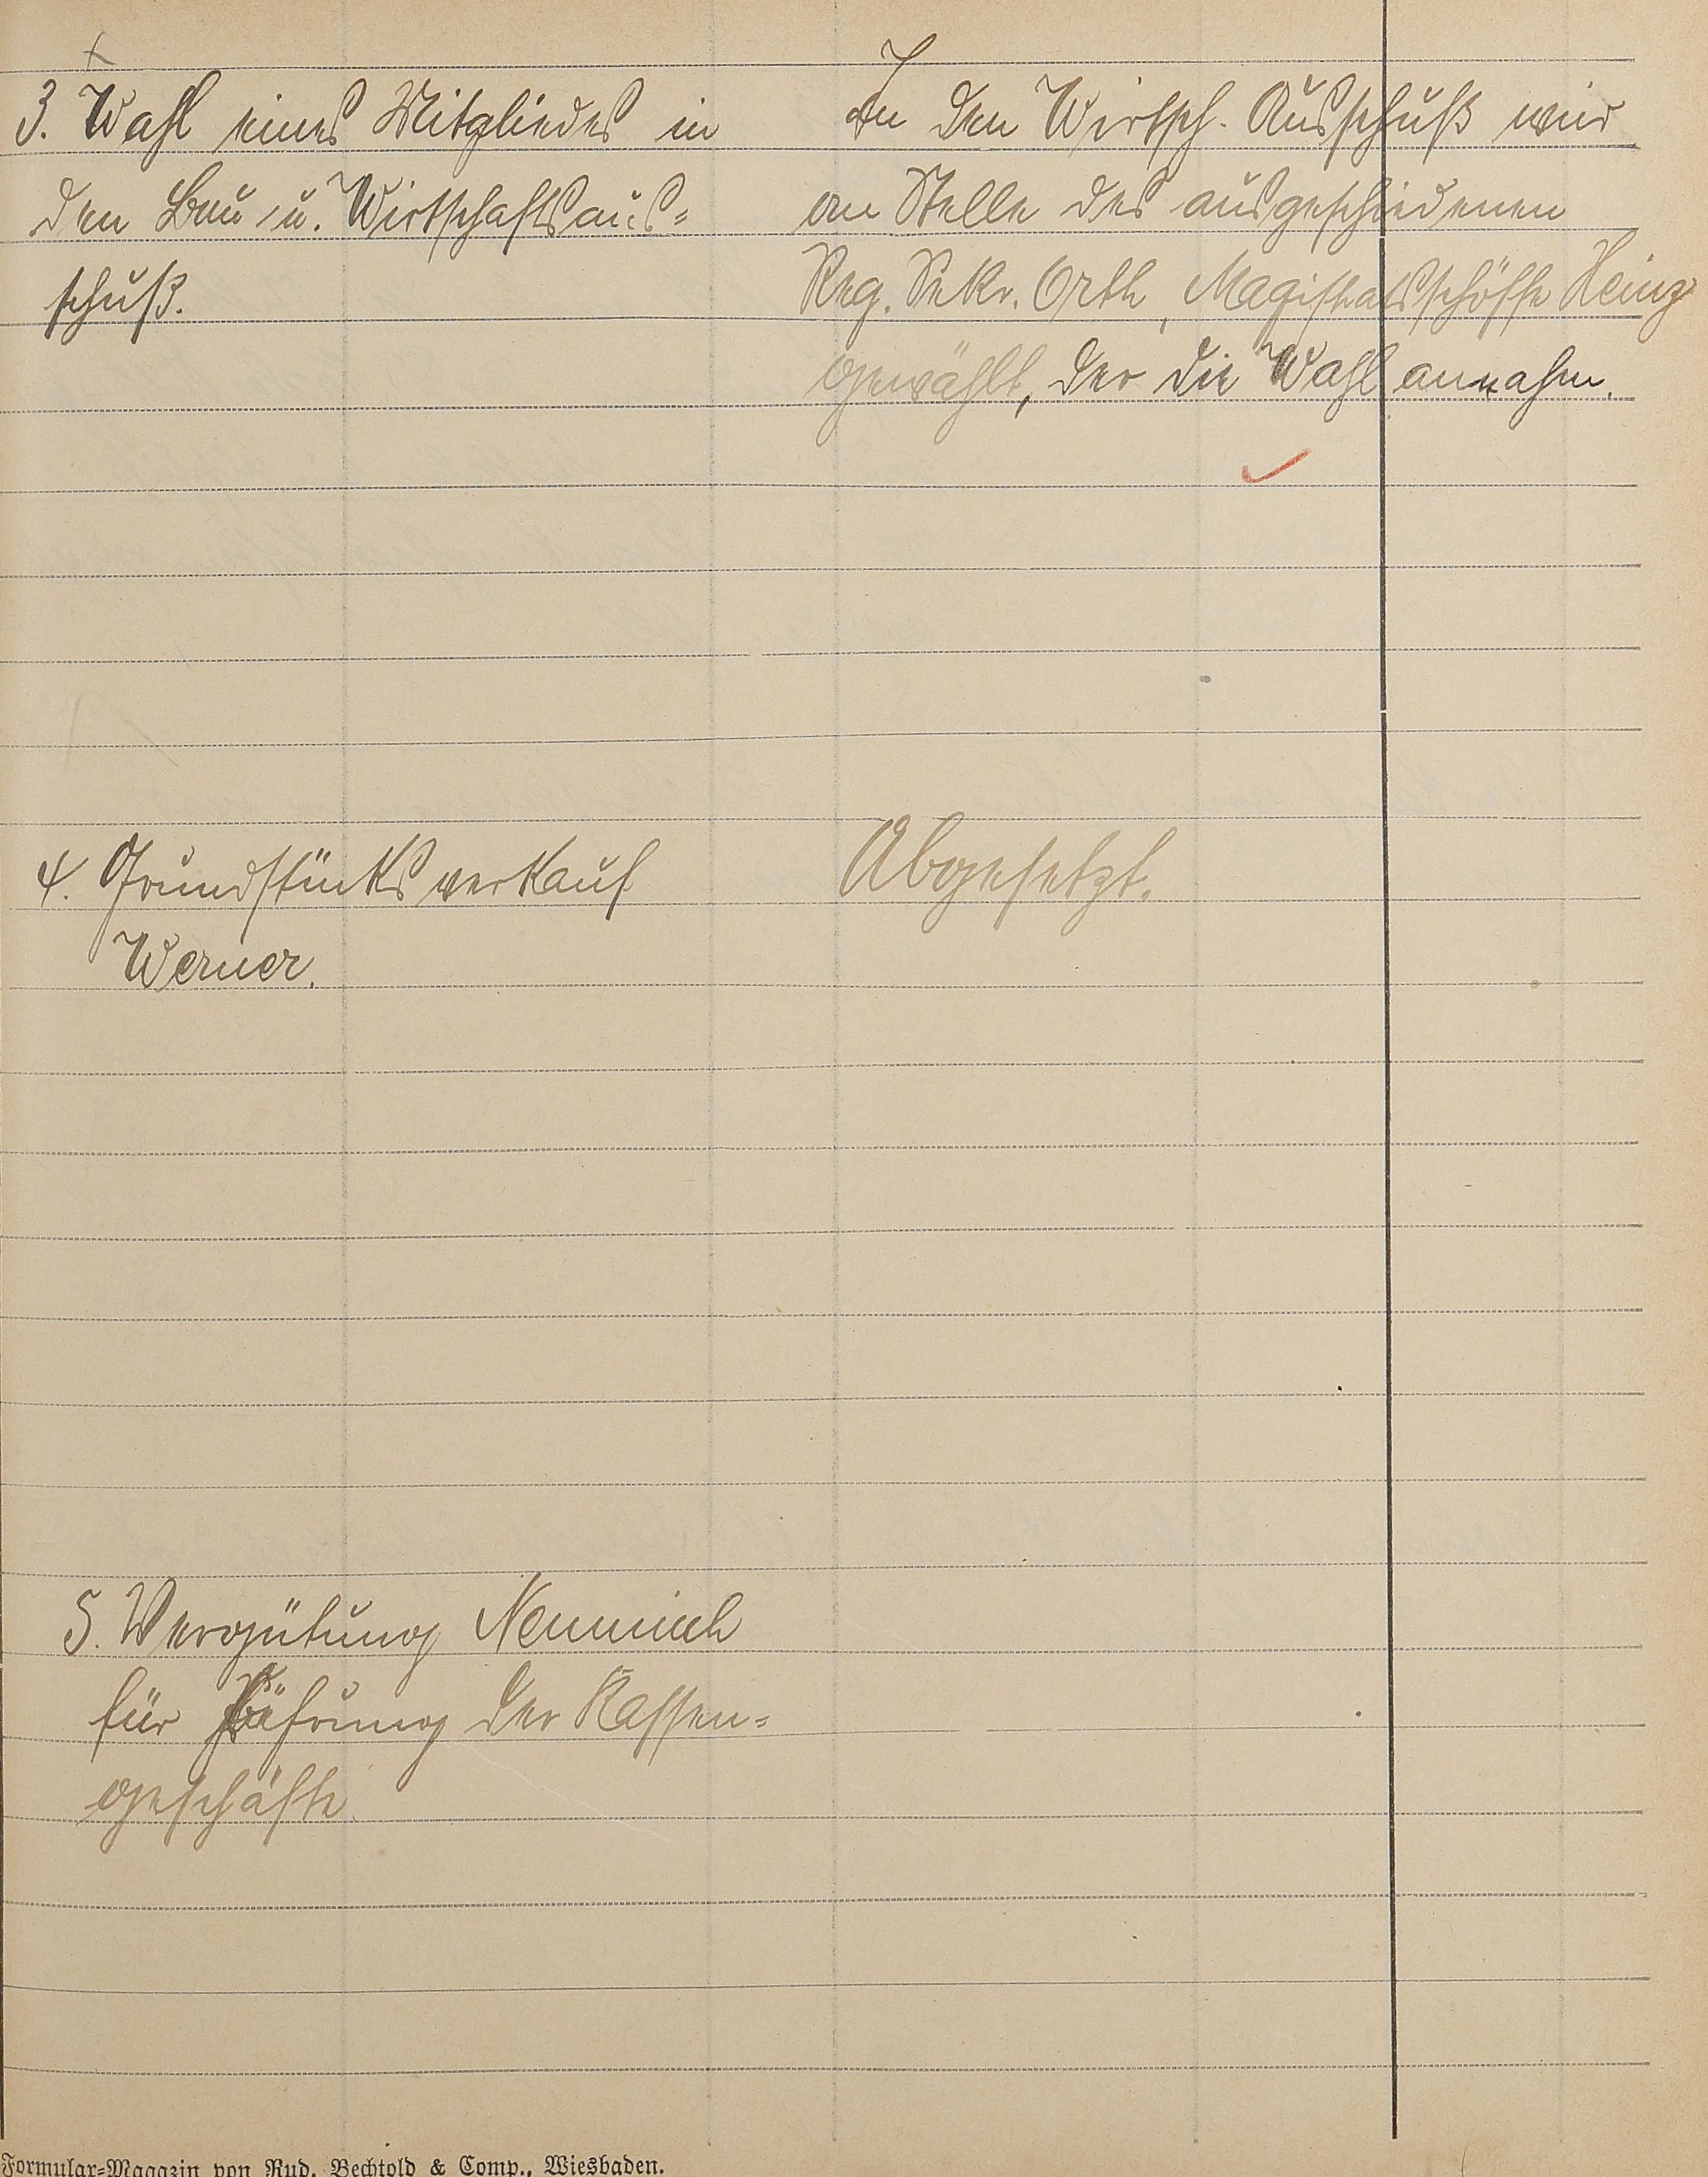 3. Wahl eines Mitgliedes in
den Bau u. Wirtschaftsaus=
schuß.
In den Wirtsch. Ausschuß wird
an Stelle des ausgeschiedenen
Reg. Sekr. Orth, Magistratsschöffe Heinz
gewählt, der die Wahl annahm.
4. Grundstücksverkauf
Werner.
Abgesetzt.
5. Vergütung Nemnich
für Führung der Kassen=
geschäfte.
Formular=Magazin von Rud. Bechtold & Comp., Wiesbaden.